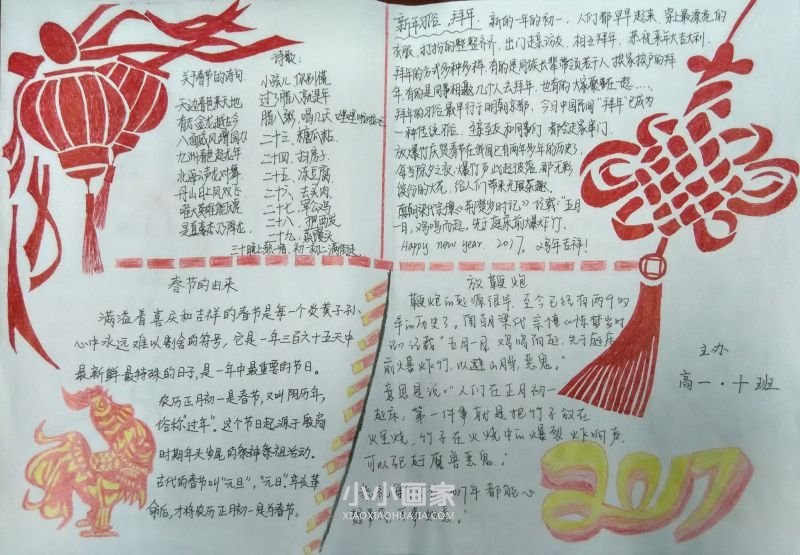 诗歌:
关于春节的诗句
天边春色来天地
北海云游龙对舞
丹山日上凤双飞
小孩儿你别馋
过了腊八就是年
腊八粥,喝几天,哩哩啦啦
二十三,糖瓜粘
二十四,扫房子
二十五,冻豆腐
二十六,去买肉
二十七,宰公鸡
二十八,把面发
二十九,蒸馒头
三十晚上熬一宿,初一初二满街走
新年习俗,拜年,新的一年的初一,人们都早早起来,穿上最漂亮的
衣服,打扮的整整齐齐,出门走亲访友,相互拜年,恭祝来年大吉大利.
拜年的方式多种多样,有的是同族长带领若干人挨家挨户的拜
年,有的是同事相邀几个人去拜年,也有的大家聚在一起……
拜年的习俗最早行于明朝京都,今日中国民间"拜年"已成为
一种传统习俗.
放爆竹庆贺春节在我国已有两千多年的历史了.
每当除夕之夜,爆竹声此起彼落,那无彩
缤纷的火花,给人们带来无限乐趣.
南朝梁代宗懔《荆楚岁时记》记载:"正月
一日,鸡鸣而起,先于庭前爆竹.
Happy new year 2017. 鸡年吉祥!
春节的由来
满溢着喜庆和吉祥的春节是每一个炎黄子孙
心中永远难以割舍的符号,它是一年三百六十五天中
最新鲜最特殊的日子,是一年中最重要的节日。
农历正月初一是春节,又叫阴历年,
俗称"过年"。这个节日起源于殷商
时期年头岁尾的祭神祭祖活动。
古代的春节叫"元旦","元日"辛亥革
命后,才将农历正月初一定为春节。
放鞭炮
鞭炮的起源很早,至今已经有两千多
年的历史了。南朝梁代宗懔《荆楚岁时
记》记载"五月一日,鸡鸣而起,先于庭
前爆炸竹,以避山臊,恶鬼。"
意思是说:"人们在正月初一
起床,第一件事就是把竹子放在
火里烧,竹子在火烧中的爆裂炸响声
可以驱赶魔兽恶鬼."
年都能心
主办
高一·十班
2017
小小画家
XIAOXIAOHUAJIA.COM